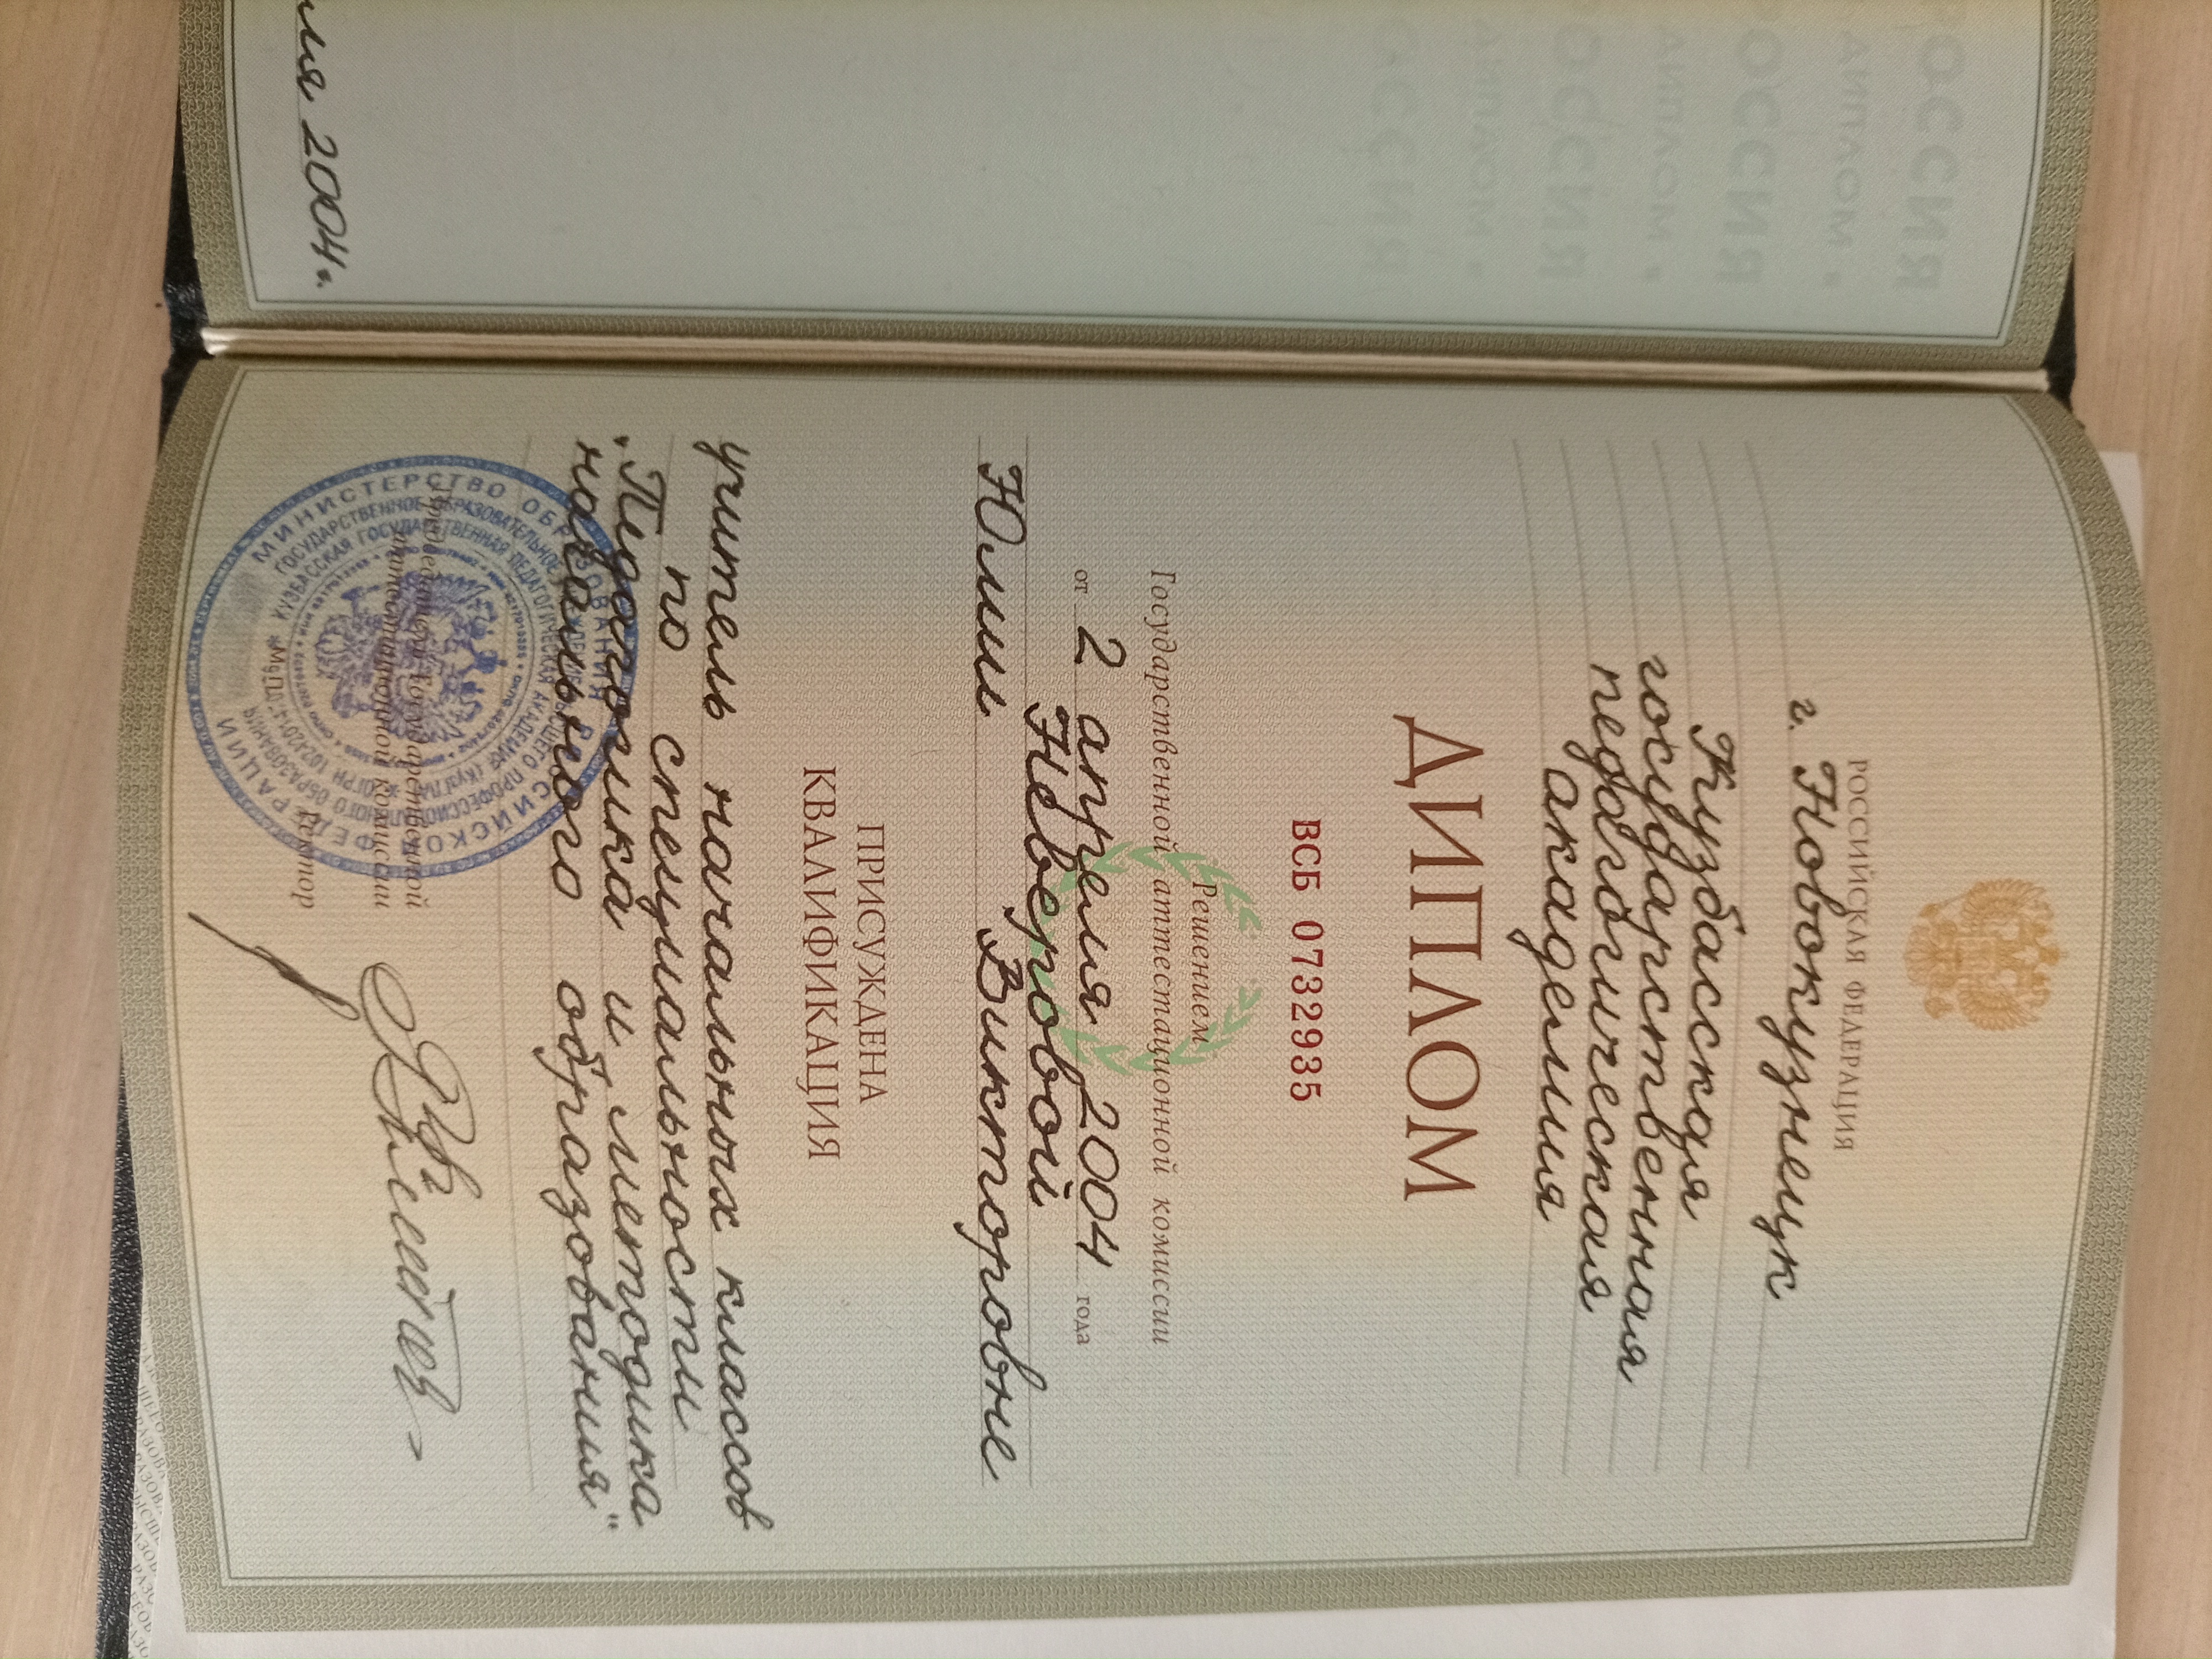 РОССИЙСКАЯ ФЕДЕРАЦИЯ
г. Новокузнецк
Кузбасская
государственная
педагогическая
академия
ДИПЛОМ
ВСБ 0732935
Решением
Государственной аттестационной комиссии
от 2 апреля 2004 года
Неверовой
Юлии Викторовне
ПРИСУЖДЕНА
КВАЛИФИКАЦИЯ
учитель начальных классов
по специальности
"Педагогика и методика
начального образования"
Председатель Государственной
аттестационной комиссии
Ректор
МИНИСТЕРСТВО ОБРАЗОВАНИЯ РОССИЙСКОЙ ФЕДЕРАЦИИ
ГОСУДАРСТВЕННОЕ ОБРАЗОВАТЕЛЬНОЕ УЧРЕЖДЕНИЕ ВЫСШЕГО ПРОФЕССИОНАЛЬНОГО ОБРАЗОВАНИЯ
КУЗБАССКАЯ ГОСУДАРСТВЕННАЯ ПЕДАГОГИЧЕСКАЯ АКАДЕМИЯ (КузГПА)
ля 2004г.
РОССИЯ
ДИПЛОМ
РОССИЯ
ДИПЛОМ
РОССИЯ